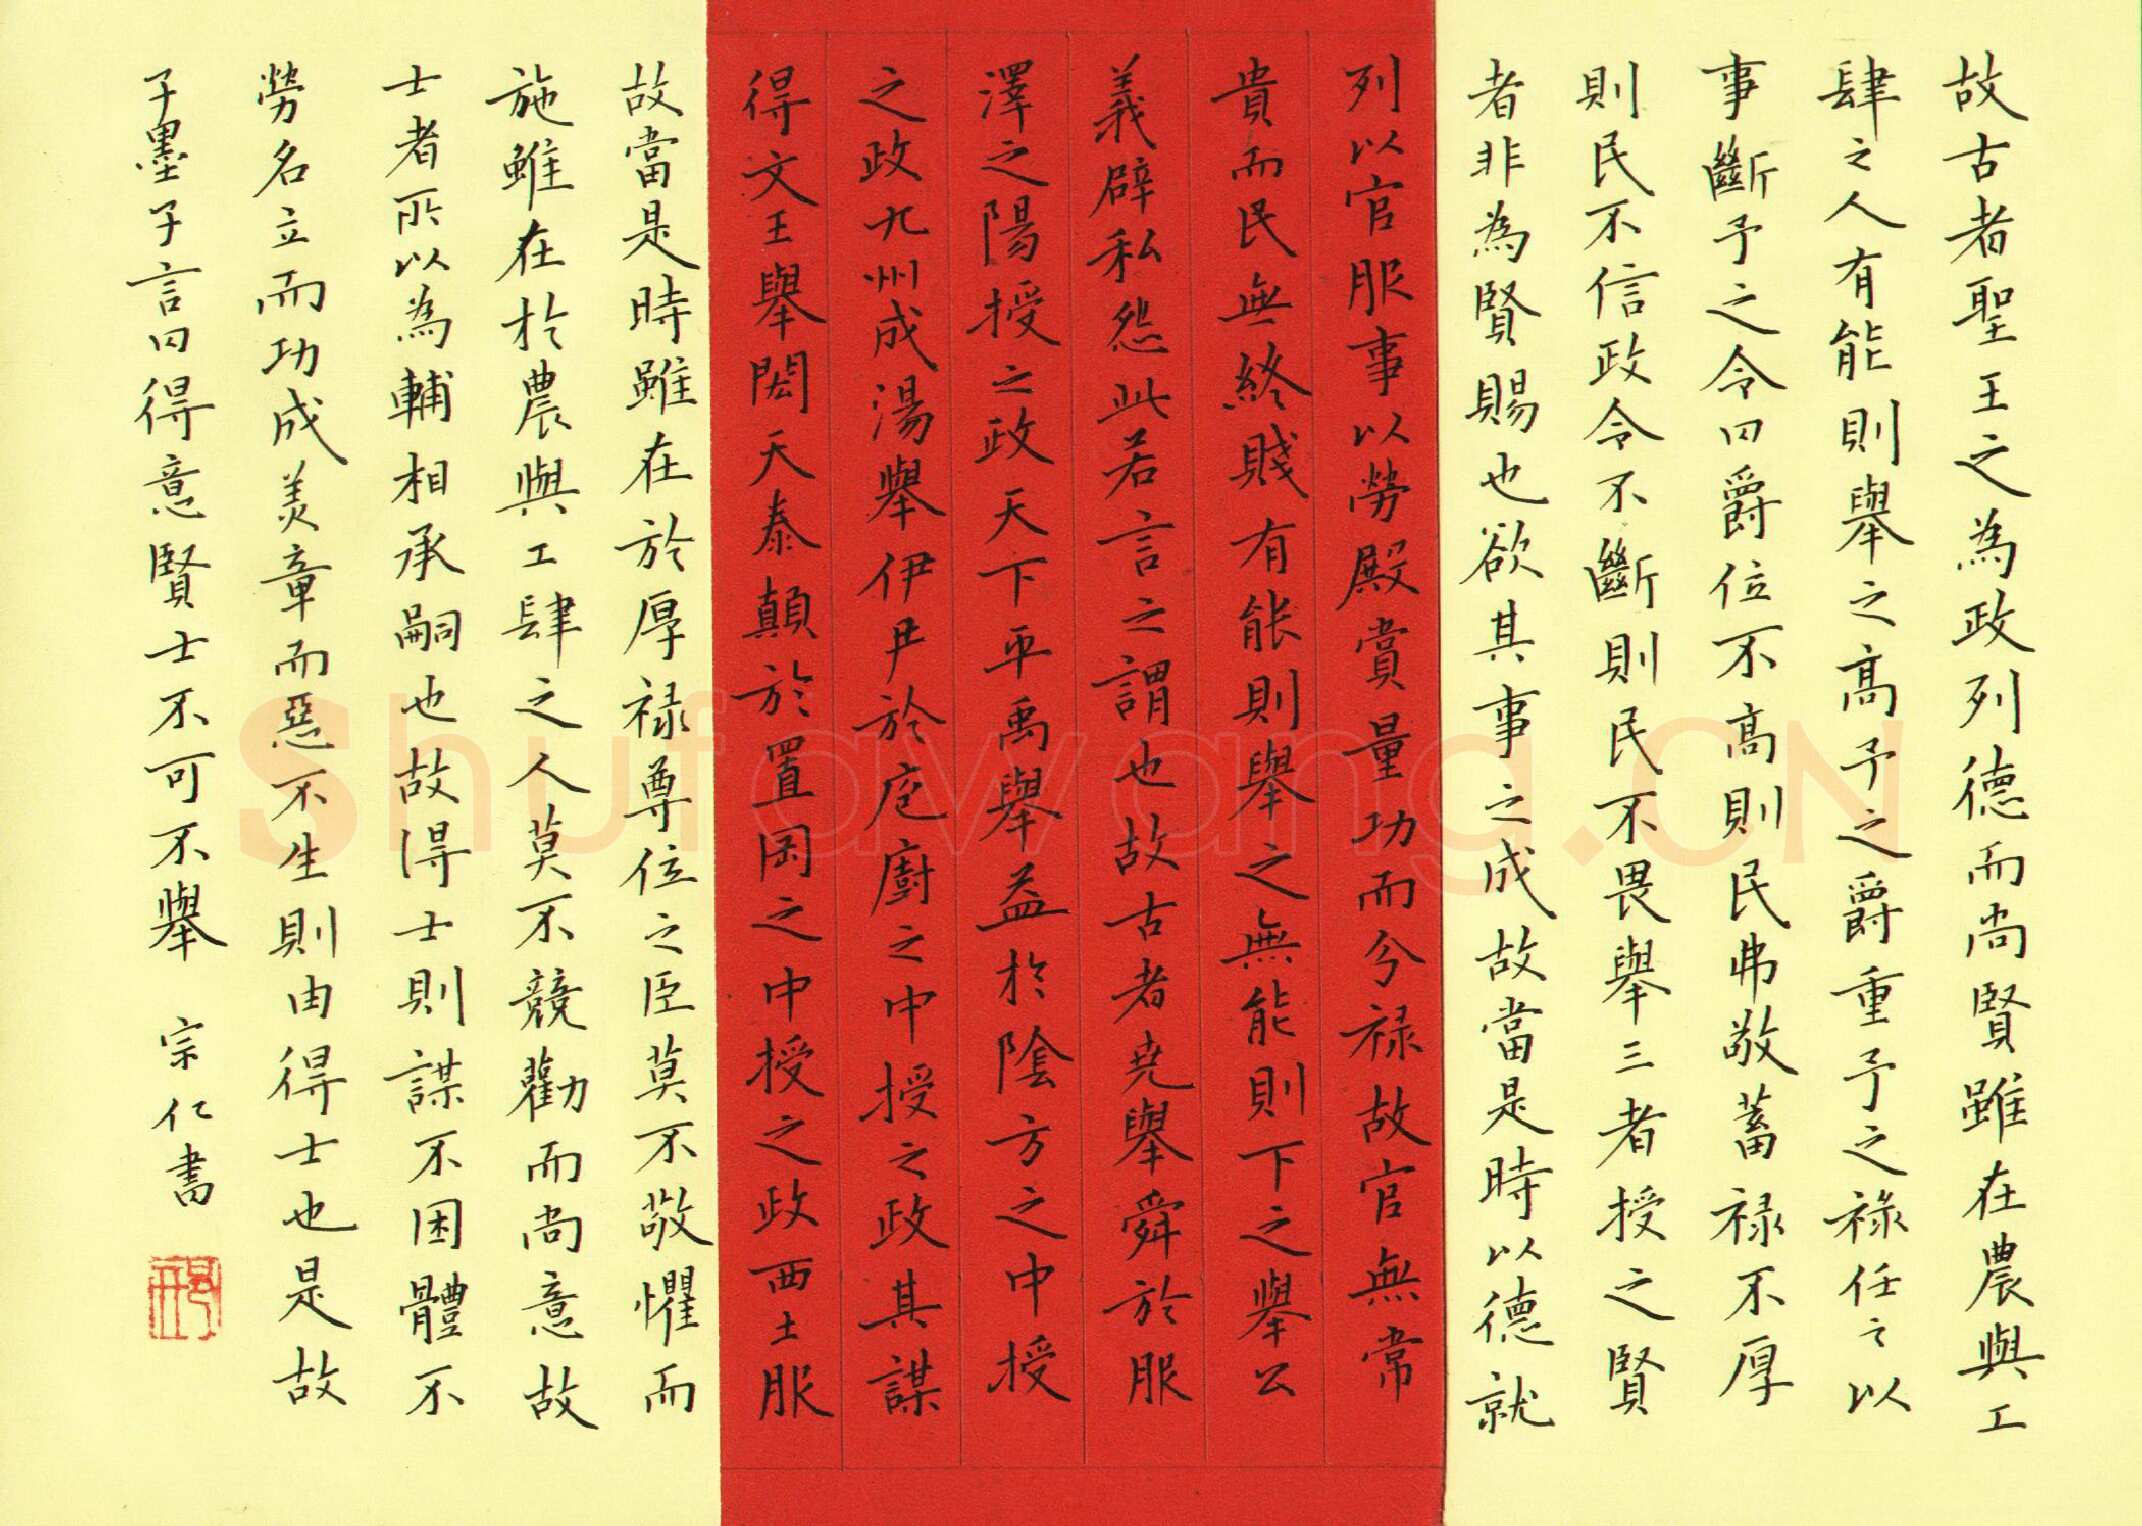 故古者聖王之為政列德而尚賢雖在農與工
肆之人有能則舉之高予之爵重予之祿任之以
事斷予之令曰爵位不高則民弗敬蓄禄不厚
則民不信政令不斷則民不畏舉三者授之賢
者非為賢賜也欲其事之成故當是時以德就
列以官服事以勞殿賞量功而分禄故官無常
貴而民無終賤有能則舉之無能則下之舉公
義辟私怨此若言之謂也故古者堯舉舜於服
澤之陽授之政天下平禹舉益於陰方之中授
之政九州成湯舉伊尹於庖廚之中授之政其謀
得文王舉閎夭泰顛於置罔之中授之政西土服
故當是時雖在於厚禄尊位之臣莫不敬懼而
施雖在於農與工肆之人莫不競勸而尚意故
士者所以為輔相承嗣也故得士則謀不困體不
勞名立而功成美章而惡不生則由得士也是故
子墨子言曰得意賢士不可不舉 宗仁書
Shufawang.CN